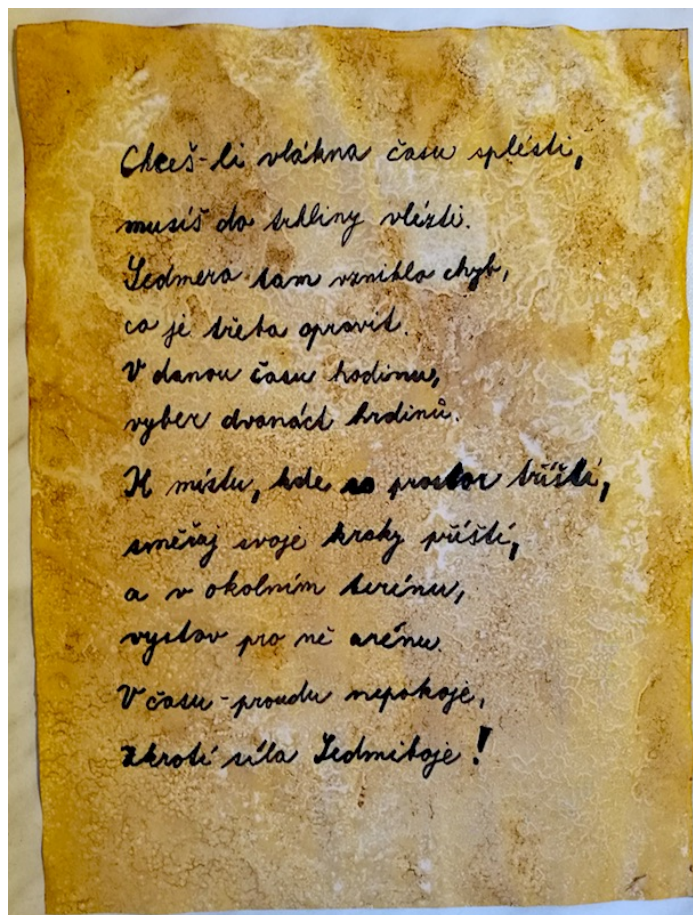 Chceš-li vlákna času splésti,
musíš do trhliny vlézti.
Sedmero tam vzniklo chyb,
co je třeba opravit.
V danou času hodinu,
vyber dvanáct hrdinů.
K místu, kde se prostor tříští,
směřuj svoje kroky příští,
a v okolním terénu,
vystav pro ně arénu.
V času-proudu nepokoje,
zkrotí síla Sedmiboje!